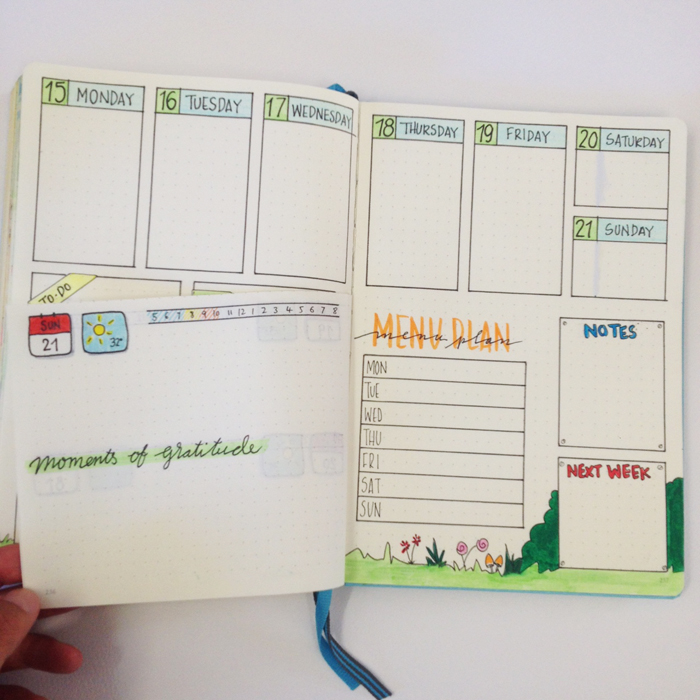 15 MONDAY
16 TUESDAY
17 WEDNESDAY
18 THURSDAY
19 FRIDAY
20 SATURDAY
21 SUNDAY
TO-DO
SUN
21
32°
5 6 7 8 9 10 11 12 1 2 3 4 5 6 7 8
moments of gratitude
MENU PLAN
menu plan
MON
TUE
WED
THU
FRI
SAT
SUN
NOTES
NEXT WEEK